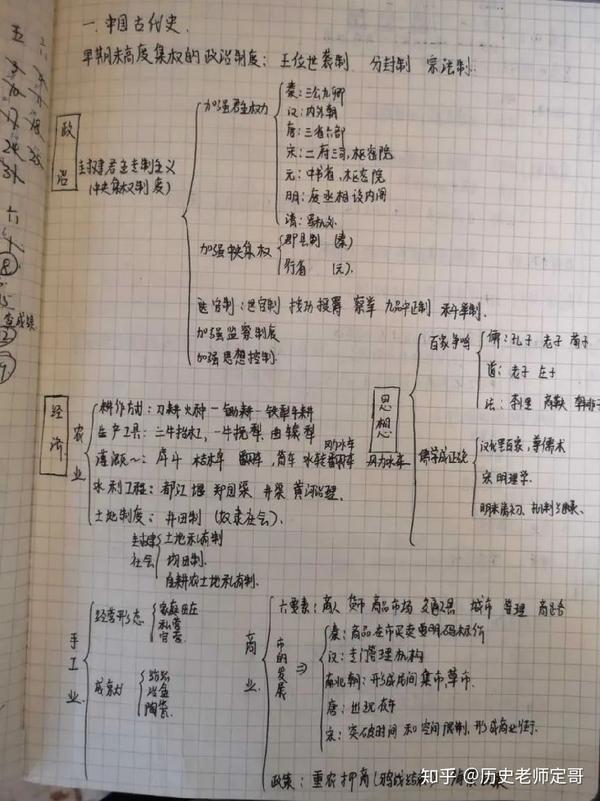 一.中国古代史.
早期未高度集权的政治制度: 王位世袭制 分封制 宗法制.
政治
封建君主专制主义
(中央集权制度)
加强君主权力
秦:三公九卿
汉:内外朝
唐:三省六部
宋:二府三司,枢密院
元:中书省,枢密院
明:废丞相设内阁
清:军机处
加强中央集权
郡县制 (秦)
行省 (元).
选官制:世官制 按功授爵 察举 九品中正制 科举制.
加强监察制度
加强思想控制
经济
农业
耕作方式:刀耕火种—锄耕—铁犁牛耕
生产工具:二牛抬杠,一牛挽犁,曲辕犁
灌溉~:戽斗 桔槔 翻车,筒车 水转翻车 风力水车
风力水车
水利工程:都江堰 郑国渠 井渠 黄河治理.
土地制度:井田制(奴隶社会).
封建社会
土地私有制
均田制.
自耕农土地私有制.
思想
百家争鸣
儒:孔子 老子 荀子
道:老子 庄子
法:李悝 商鞅 韩非子
儒学成正统
汉:罢黜百家,尊儒术
宋明理学.
明末清初
手工业
经营形态
家庭田庄
私营
官营
成就
纺织
冶金
陶瓷.
商业
六要素:商人 货币 商品市场 交通工具 城市 管理
市的发展
秦:商品在市买卖要明码标价
汉:专门管理机构
南北朝:形成民间集市,草市.
唐:出现夜市
宋:突破时间和空间限制,形成商业街.
政策:重农抑商
知乎 @历史老师定哥